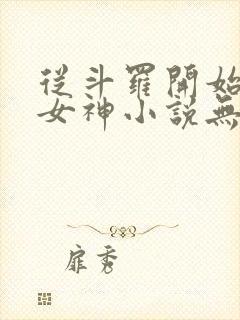 從斗羅開始
女神小說無
扉秀